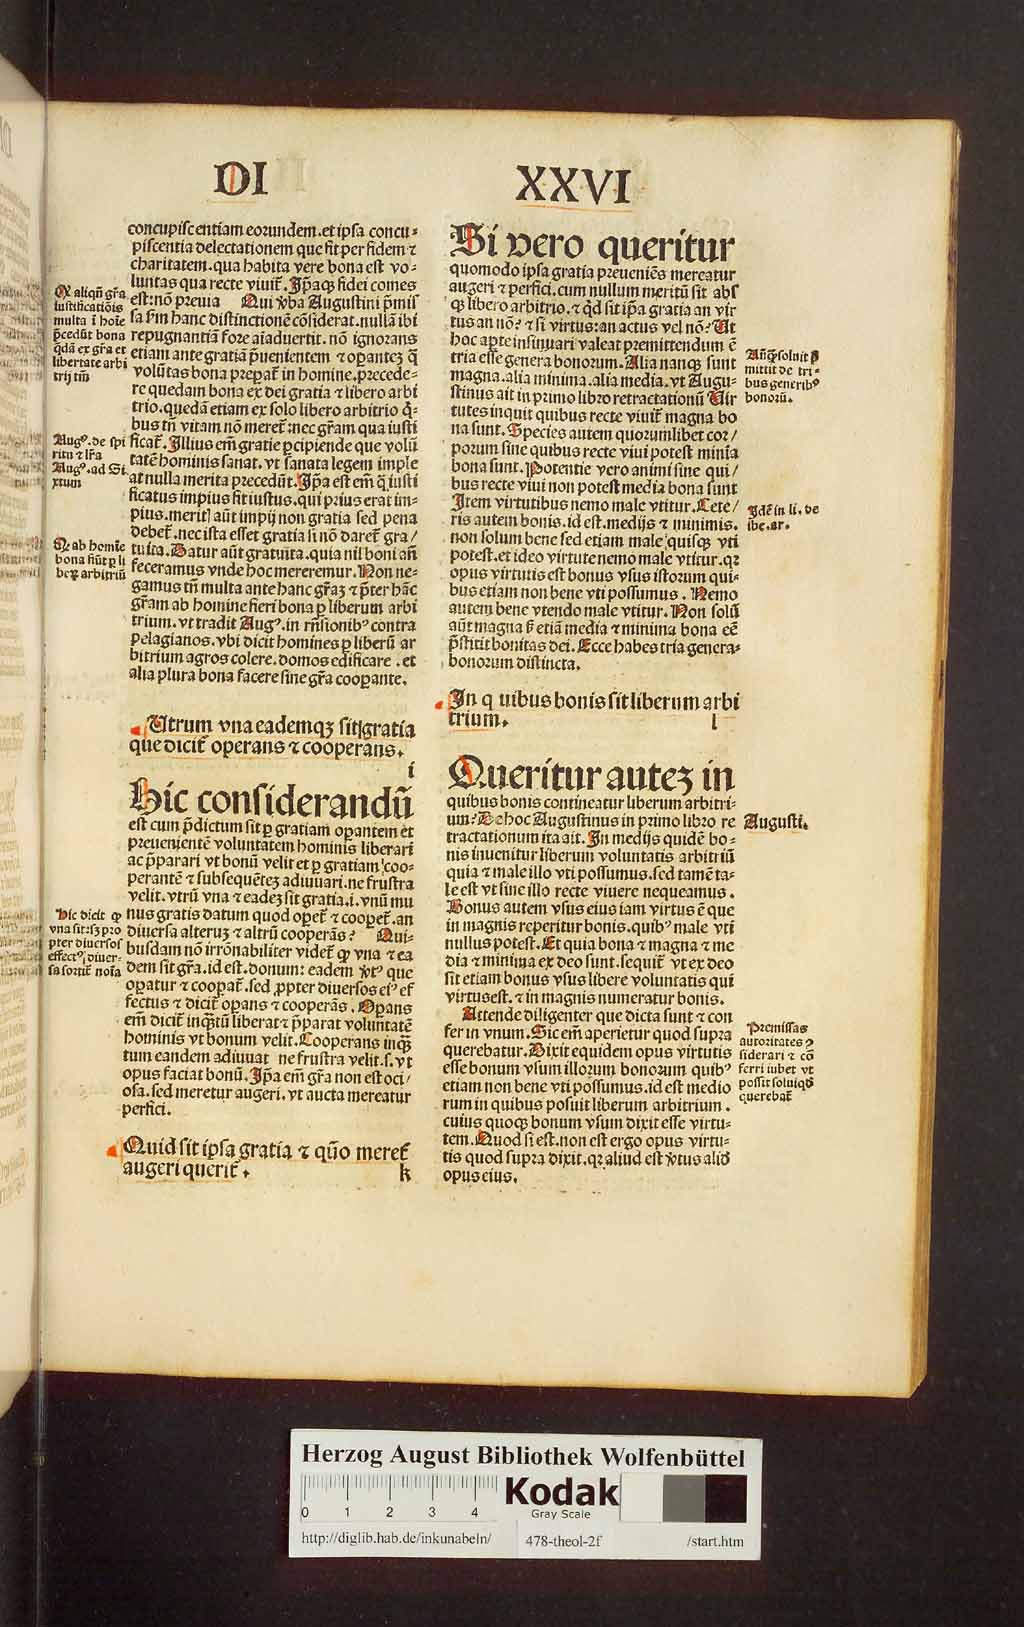 DI XXVI
concupiscentiam eorundem.et ipsa concu⸗
piscentia delectationem que fit per fidem ⁊
charitatem.qua habita vere bona est vo⸗
luntas qua recte viuit̄. Ip̄aqꝫ fidei comes
est:nō preuia Qui v̓ba Augustini p̄mis
sa ẜm hanc distinctionē cōsiderat.nullā ibi
repugnantiā fore aīaduertit.nō ignorans
etiam ante gratiā p̄uenientem ⁊ opantez q̄
volūtas bona prepat̄ in homine.precede⸗
re quedam bona ex dei gratia ⁊ libero arbi
trio.quedā etiam ex solo libero arbitrio q̄⸗
bus tn̄ vitam nō meret̄:nec gr̄am qua iusti
ficat̄. Illius em̄ gratie ꝑcipiende que volū
tatē hominis sanat.vt sanata legem imple
at nulla merita precedūt. Ip̄a est em̄ q̄ iusti
ficatus impius fit iustus.qui prius erat im⸗
pius.merit] aūt impij non gratia sed pena
debet̄.nec ista esset gratia si nō daret̄ gra/
tuita. Datur aūt gratuita.quia nil boni añ
feceramus vnde hoc mereremur. Non ne⸗
gamus tn̄ multa ante hanc gr̄aꝫ ⁊ p̄ter hāc
gr̄am ab homine fieri bona ꝑ liberum arbi
trium.vt tradit Augꝰ.in rn̄sionibꝰ contra
pelagianos.vbi dicit homines ꝑ liberū ar
bitrium agros colere.domos edificare.et
alia plura bona facere sine gr̄a cooꝑante.
Utrum vna eademqꝫ sit gratia
que dicit̄ operans ⁊ cooperans.
i
Hic considerandū
est cum p̄dictum sit ꝑ gratiam opantem et
preuenientē voluntatem hominis liberari
ac p̄parari vt bonū velit et ꝑ gratiam coo⸗
perantē ⁊ subsequētez adiuuari.ne frustra
velit.vtrū vna ⁊ eadeꝫ sit gratia.i.vnū mu
nus gratis datum quod opet̄ ⁊ coopet̄.an
diuersa alteruꝫ ⁊ altrū cooperās? Qui⸗
busdam nō irrōnabiliter videt̄ ꝙ vna ⁊ ea
dem sit gr̄a.id est.donum: eadem v̓tꝰ que
opatur ⁊ coopat̄.sed ꝓpter diuersos eiꝰ ef
fectus ⁊ dicit̄ opans ⁊ cooperās. Opans
em̄ dicit̄ inqꝫtū liberat ⁊ p̄parat voluntatē
hominis vt bonum velit. Cooperans inqꝫ
tum eandem adiuuat ne frustra velit.s.vt
opus faciat bonū. Ip̄a em̄ gr̄a non est oci/
osa.sed meretur augeri.vt aucta mereatur
perfici.
Quid sit ipsa gratia ⁊ quō meret̄
augeri querit̄.
k
Si vero queritur
quomodo ipsa gratia preueniēs mereatur
augeri ⁊ perfici.cum nullum meritū sit abs
qꝫ libero arbitrio.⁊ qd̓ sit ip̄a gratia an vir
tus an nō? ⁊ si virtus:an actus vel nō? Ut
hoc apte insinuari valeat premittendum ē
tria esse genera bonorum. Alia nanqꝫ sunt
magna.alia minima.alia media.vt Augu⸗
stinus ait in primo libro retractationū Uir
tutes inquit quibus recte viuit̄ magna bo
na sunt. Species autem quorumlibet cor/
porum sine quibus recte viui potest minīa
bona sunt. Potentie vero animi sine qui/
bus recte viui non potest media bona sunt
Item virtutibus nemo male vtitur. Cete/
ris autem bonis.id est.medijs ⁊ minimis.
non solum bene sed etiam male quisqꝫ vti
potest.et ideo virtute nemo male vtitur.qꝛ
opus virtutis est bonus vsus istorum qui⸗
bus etiam non bene vti possumus. Nemo
autem bene vtendo male vtitur. Non solū
aūt magna ẜꝫ etiā media ⁊ minima bona eē
p̄stitit bonitas dei. Ecce habes tria genera⸗
bonorum distincta.
In q uibus bonis sit liberum arbi
trium.
l
Queritur autez in
quibus bonis contineatur liberum arbitri⸗
um? De hoc Augustinus in primo libro re
tractationum ita ait. In medijs quidē bo⸗
nis inuenitur liberum voluntatis arbitriū
quia ⁊ male illo vti possumus.sed tamē ta⸗
le est vt sine illo recte viuere nequeamus.
Bonus autem vsus eius iam virtus ē que
in magnis reperitur bonis.quibꝰ male vti
nullus potest. Et quia bona ⁊ magna ⁊ me
dia ⁊ minima ex deo sunt.sequit̄ vt ex deo
sit etiam bonus vsus libere voluntatis qui
virtus est.⁊ in magnis numeratur bonis.
Attende diligenter que dicta sunt ⁊ con
fer in vnum. Sic em̄ aperietur quod supra
querebatur. Dixit equidem opus virtutis
esse bonum vsum illorum bonorum quibꝰ
etiam non bene vti possumus.id est medio
rum in quibus posuit liberum arbitrium.
cuius quoqꝫ bonum vsum dixit esse virtu⸗
tem. Quod si est.non est ergo opus virtu⸗
tis quod supra dixit.qꝛ aliud est v̓tus aliđ
opus eius.
Ꝙ aliqn̄ gr̄a
iustificatiōis
multa ī hoīe
p̄cedūt bona
qdā ex gr̄a et
libertate arbi
trij tm̄
Augꝰ. de spi
ritu ⁊ lr̄a
Augꝰ. ad Si
xtum
Ꝙ ab homīe
bona fiūt ꝑ li
beꝝ arbitriū
Hic dicit ꝙ
vna sit:sꝫ pro
pter diuersos
effectꝰ, diuer⸗
sa sortit̄ noīa
mittit de tri⸗
bus generibꝰ
bonorū.
Idē in li. de
libe. ar.
Augusti.
Premissas
autoritates ꝯ
siderari ⁊ cō
ferri iubet vt
possit solui qđ
querebat̄
Herzog August Bibliothek Wolfenbüttel
0 1 2 3 4
Kodak
Gray Scale
http://diglib.hab.de/inkunabeln/ 478-theol-2f /start.htm